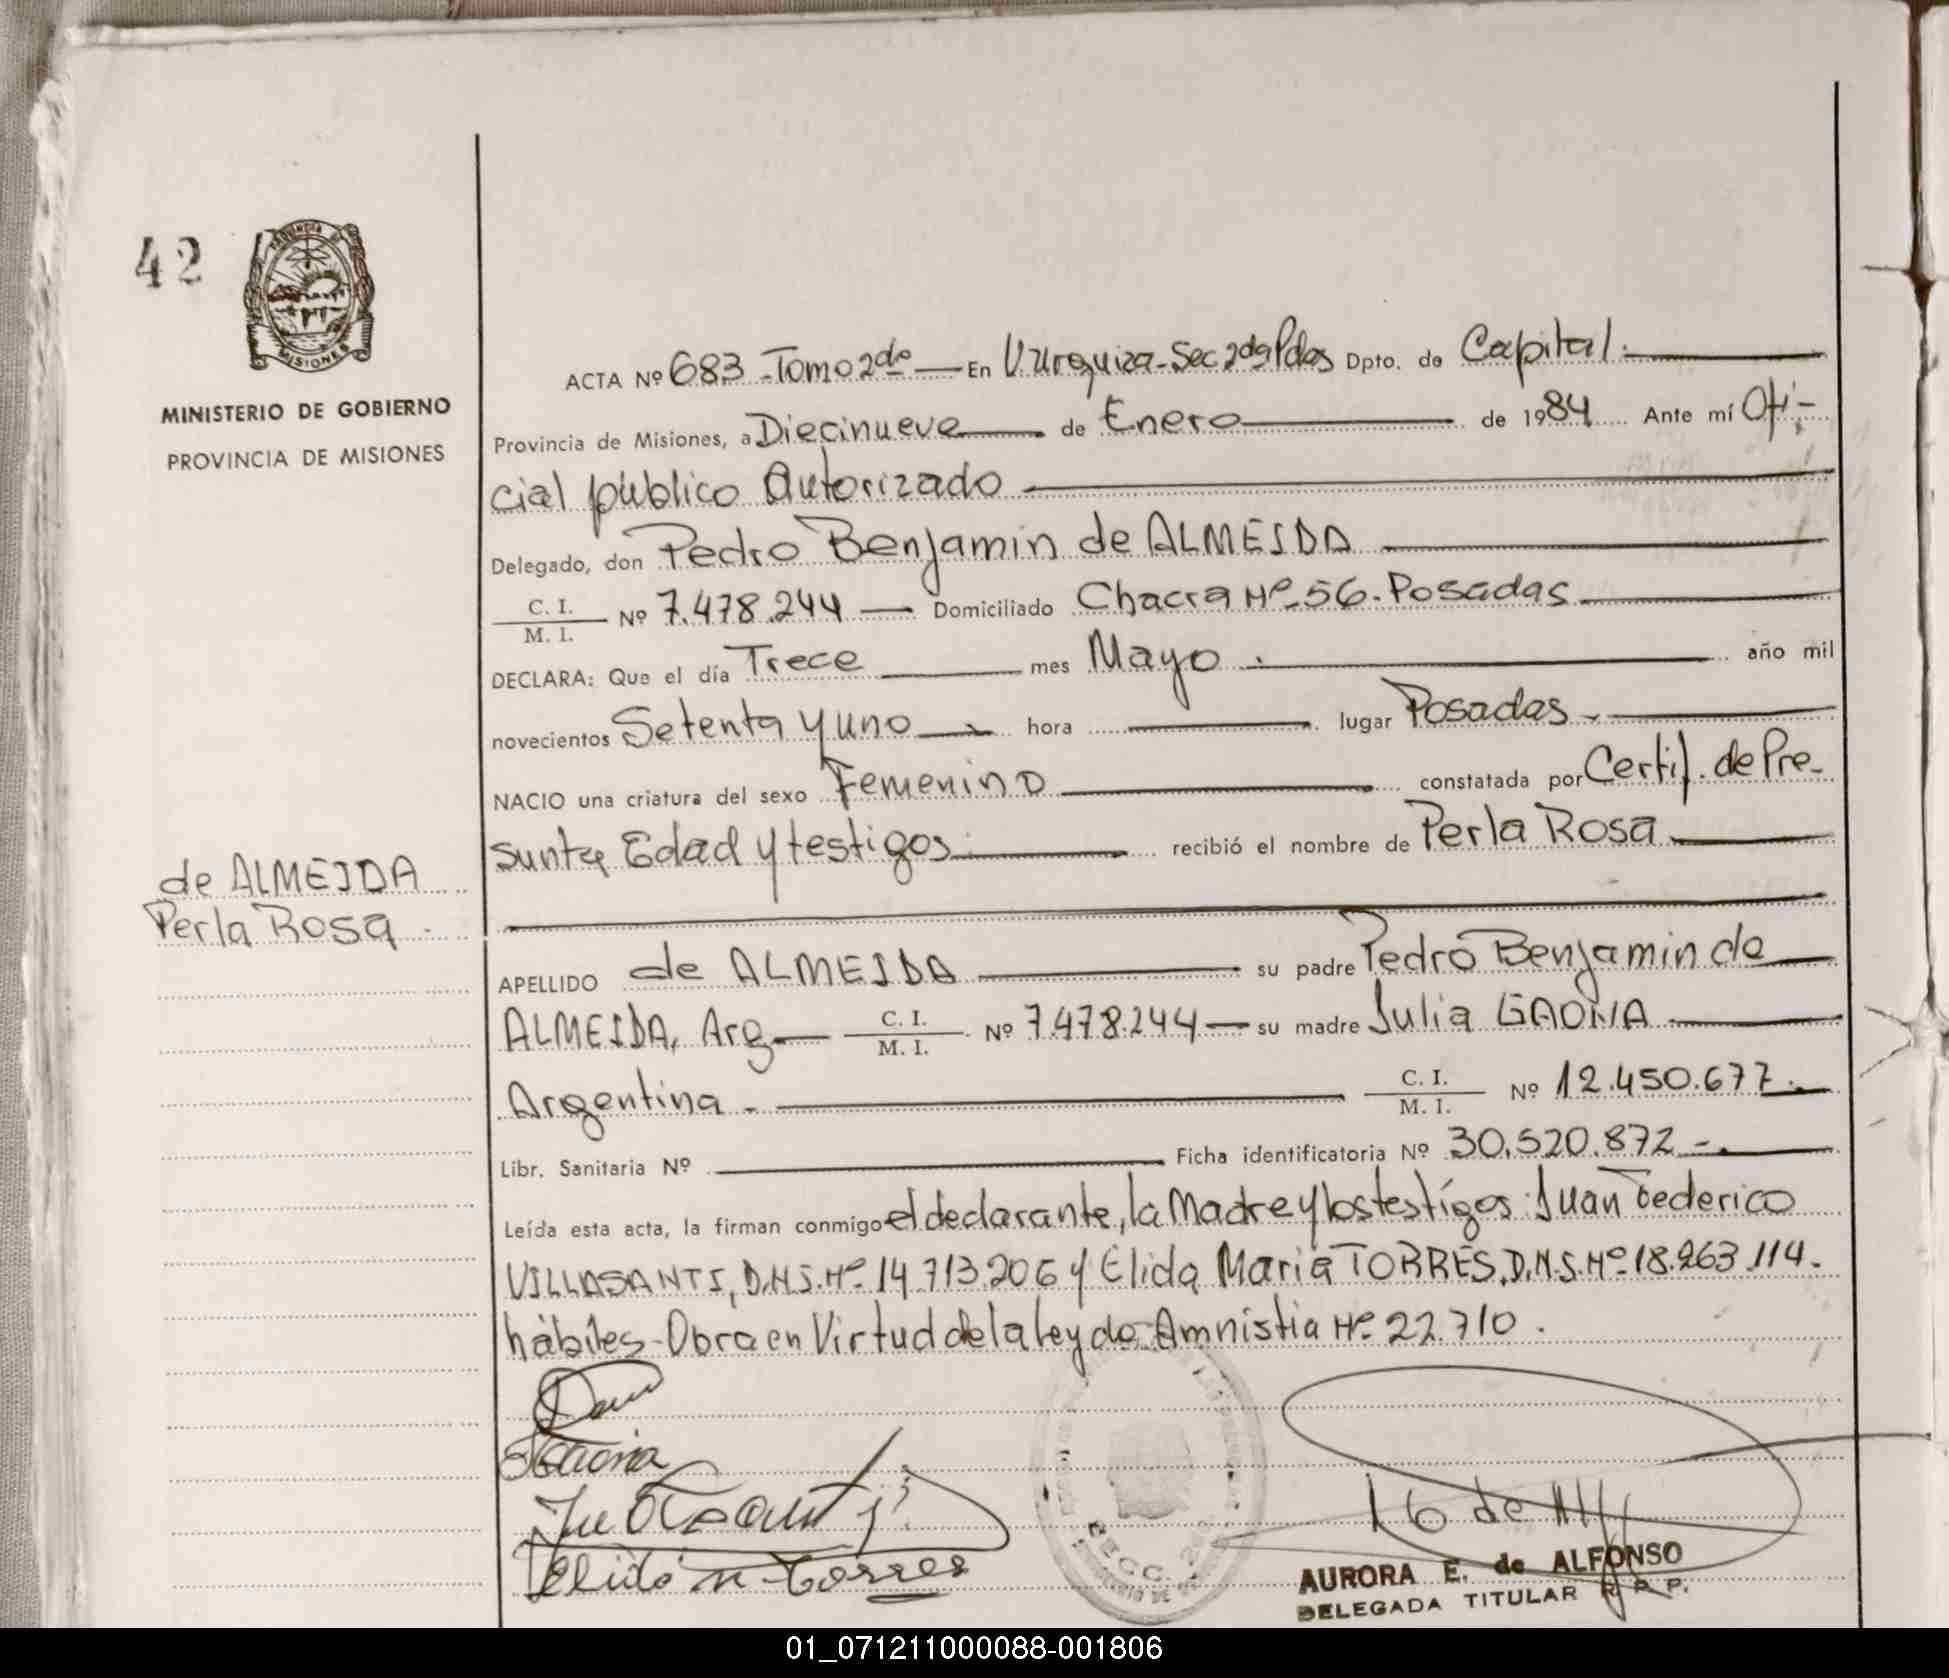 42
MISIONES
MINISTERIO DE GOBIERNO
PROVINCIA DE MISIONES
ACTA Nº 683 - Tomo 2do En V. Urquiza - Sec 2da Pdas Dpto. de Capital.
Provincia de Misiones, a Diecinueve de Enero de 1984 Ante mí Ofi-
cial público Autorizado
Delegado, don Pedro Benjamin de ALMEIDA
C. I. / M. I. Nº 7.478.244 Domiciliado Chacra Nº 56. Posadas
DECLARA: Que el día Trece mes Mayo. año mil
novecientos Setenta y uno hora lugar Posadas.
NACIO una criatura del sexo Femenino constatada por Certif. de Pre-
sunta Edad y testigos recibió el nombre de Perla Rosa
de ALMEIDA
Perla Rosa.
APELLIDO de ALMEIDA su padre Pedro Benjamin de
ALMEIDA, Arg C. I. / M. I. Nº 7.478.244 su madre Julia GAONA
Argentina. C. I. / M. I. Nº 12.450.677.
Libr. Sanitaria Nº Ficha identificatoria Nº 30.520.872 -
Leída esta acta, la firman conmigo el declarante, la Madre y los testigos: Juan Federico
VILLASANTI, D.N.I. Nº 14.713.206 y Elida Maria TORRES. D.N.I. Nº 18.263.114.
hábiles - Obra en Virtud de la ley de Amnistia Nº 22.710.
Gaona
Elida M Torres
AURORA E. de ALFONSO
DELEGADA TITULAR R. P. P.
01_071211000088-001806